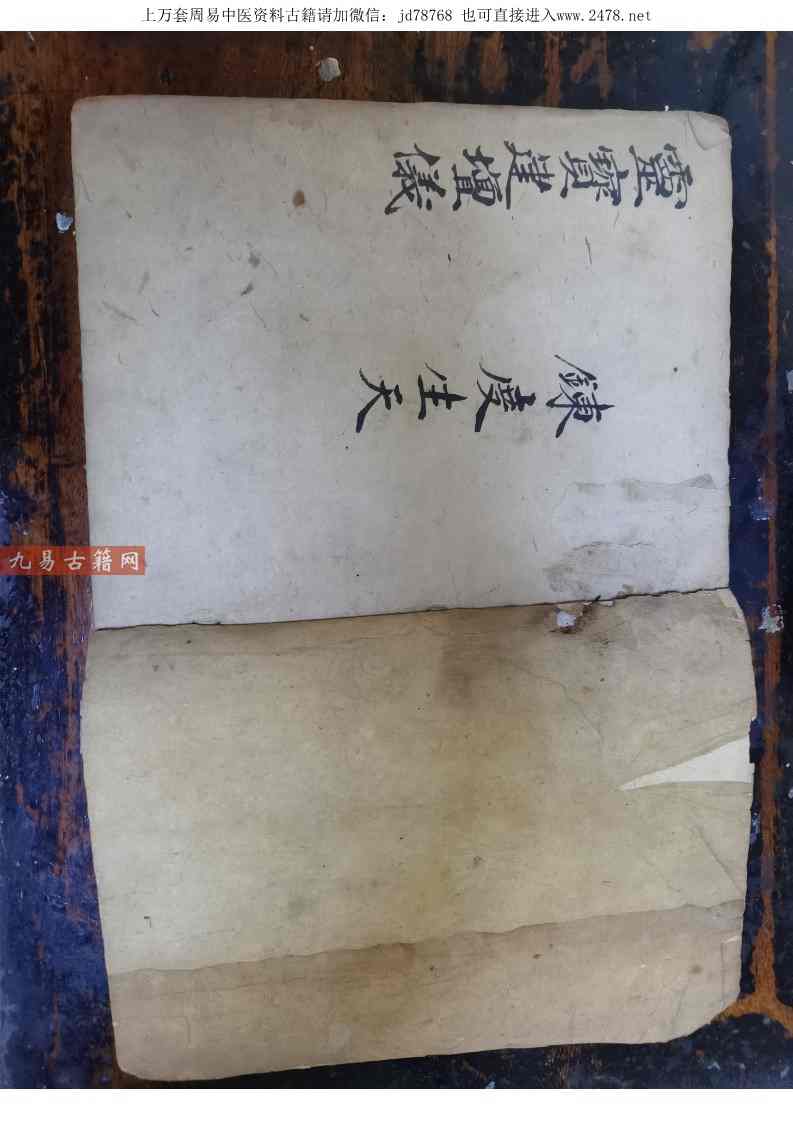 上万套周易中医资料古籍请加微信：jd78768 也可直接进入www.2478.net
靈寶建壇儀
鍊度生天
九易古籍网